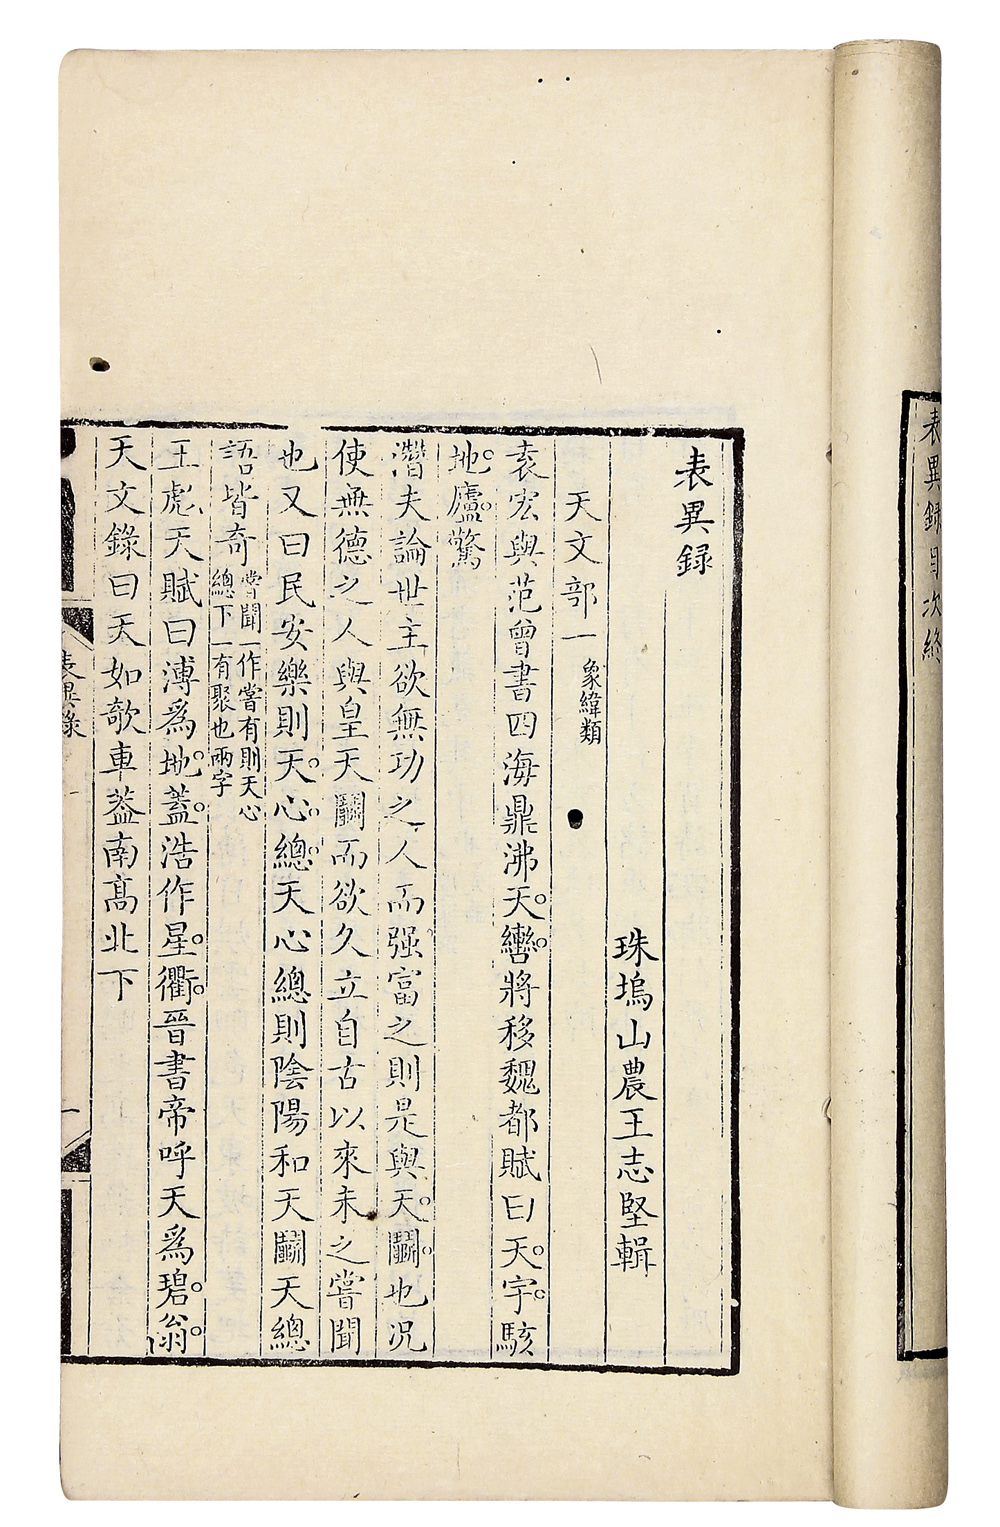 表異録目次終
表異録
珠塢山農王志堅輯
天文部一 象緯類
袁宏與范曾書四海鼎沸天轡將移魏都賦曰天宇駭
地廬驚
潛夫論世主欲無功之人而强富之則是與天鬭也况
使無德之人與皇天鬭而欲久立自古以來未之嘗聞
也又曰民安樂則天心總天心總則陰陽和天鬭天總
語皆奇 嘗聞一作嘗有則天心
總下一有聚也兩字
王彪天賦曰溥爲地蓋浩作星衢晉書帝呼天爲碧翁
天文錄曰天如欹車葢南髙北下
表異錄
一